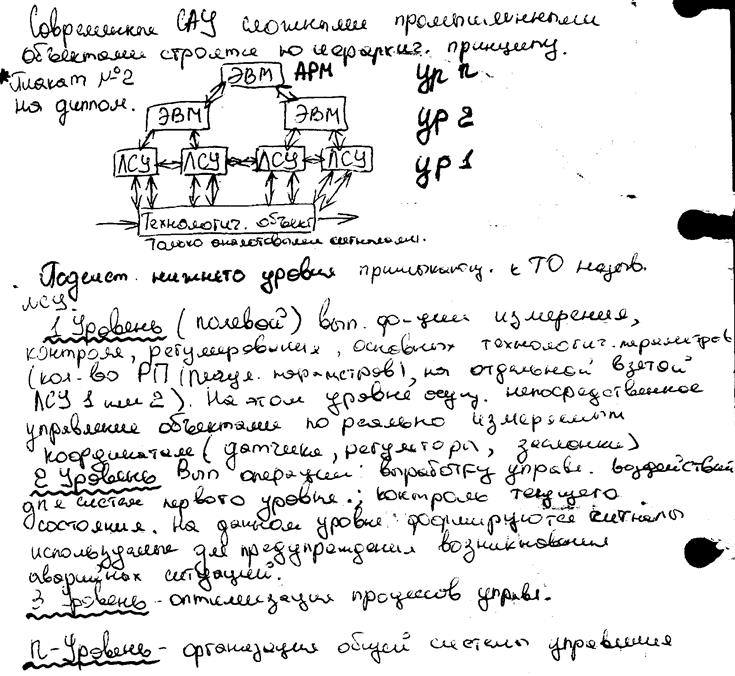 Современные САУ сложными промышленными
объектами строятся по иерархич. принципу.
*Плакат №2
на диплом.
ЭВМ АРМ ур n
ЭВМ ЭВМ ур 2
ЛСУ ЛСУ ЛСУ ЛСУ ур 1
Технологич. объект
Только аналоговыми сигналами.
Подсист. нижнего уровня примыкающ. к ТО назыв.
ЛСУ.
1 Уровень (полевой) вып. ф-ции измерения,
контроля, регулирования, основных технологич. параметров
(кол-во РП (регул. параметров), на отдельной взятой
ЛСУ 1 или 2). На этом уровне осущ. непосредственное
управление объектами по реально измеряемым
координатам (датчики, регуляторы, заслонки)
2 Уровень Вып операции: выработку управл. воздействий
для систем первого уровня.; контроль текущего
состояния. На данном уровне формируются сигналы
используемые для предупреждения возникновения
аварийных ситуаций.
3 Уровень - оптимизация процессов управл.
n-Уровень - организация общей системы управления